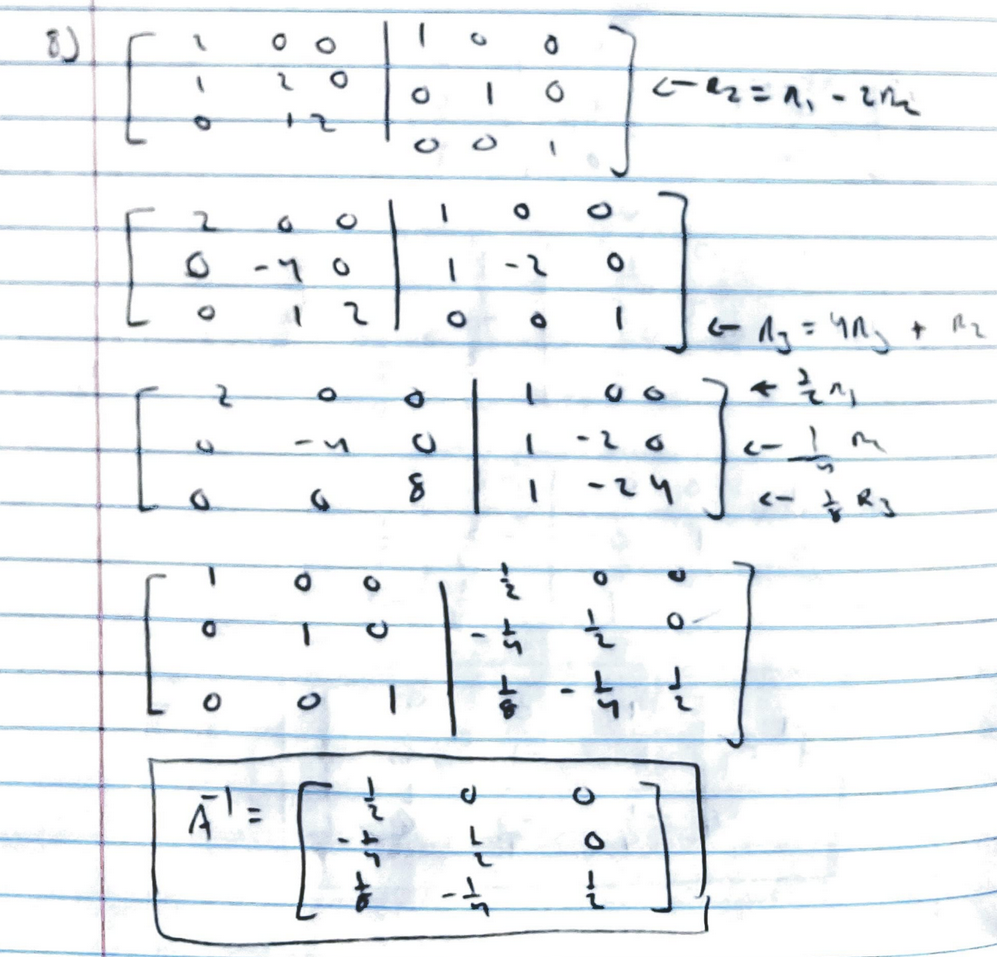 8) [ 2 0 0 | 1 0 0 ]
1 2 0 | 0 1 0 ← R₂ = R₁ - 2R₂
0 1 2 | 0 0 1
[ 2 0 0 | 1 0 0 ]
0 -4 0 | 1 -2 0
0 1 2 | 0 0 1 ← R₃ = 4R₃ + R₂
[ 2 0 0 | 1 0 0 ] ← R₁
0 -4 0 | 1 -2 0 ←
0 0 8 | 1 -2 4 ← 1/8 R₃
[ 1 0 0 | 1/2 0 0 ]
0 1 0 | -1/4 1/2 0
0 0 1 | 1/8 -1/4 1/2
A⁻¹ = [ 1/2 0 0 ]
-1/4 1/2 0
1/8 -1/4 1/2